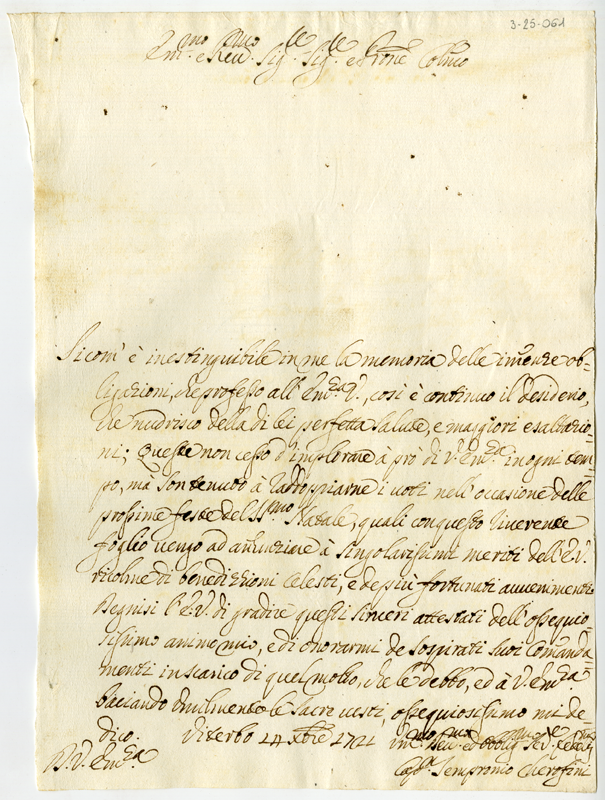 3-25-061
Em.mo e Rev.mo Sig.re Sig.re e Prone Colmo
Sicom' è inestinguibile in me la memoria delle immenze ob=
ligazioni, che professo all' Em.za V., così è continuo il desiderio,
che nudrisco della di lei perfetta salute, e maggiori esaltazio=
ni; Queste non cesso d'implorare à prò di V. Em.za in ogni tem=
po, mà son tenuto à raddoppiarne i voti nell'occasione delle
prossime feste del SS.mo Natale, quali con questo riverente
foglio vengo ad annunziare à singolarissimi meriti dell'E.V.
ricolme di benedizzioni celesti, e de più fortunati avvenimenti
Degnisi l'E.V. di gradire questi sinceri attestati dell'ossequio=
sissimo animo mio, e di onorarmi de sospirati suoi comanda=
menti in scarico di quel molto, che le debbo, ed à V. Em.za
baciando umilmente le sacre vesti, ossequiosissimo mi de=
dico. Viterbo 24 Xbre 1721
D. V. Em.za
Um.mo Dev.mo ed Obblig.mo
Sempronio Cherofini